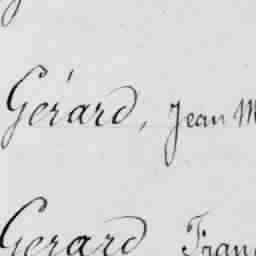 Gérard, Jean M
Gerard Fran